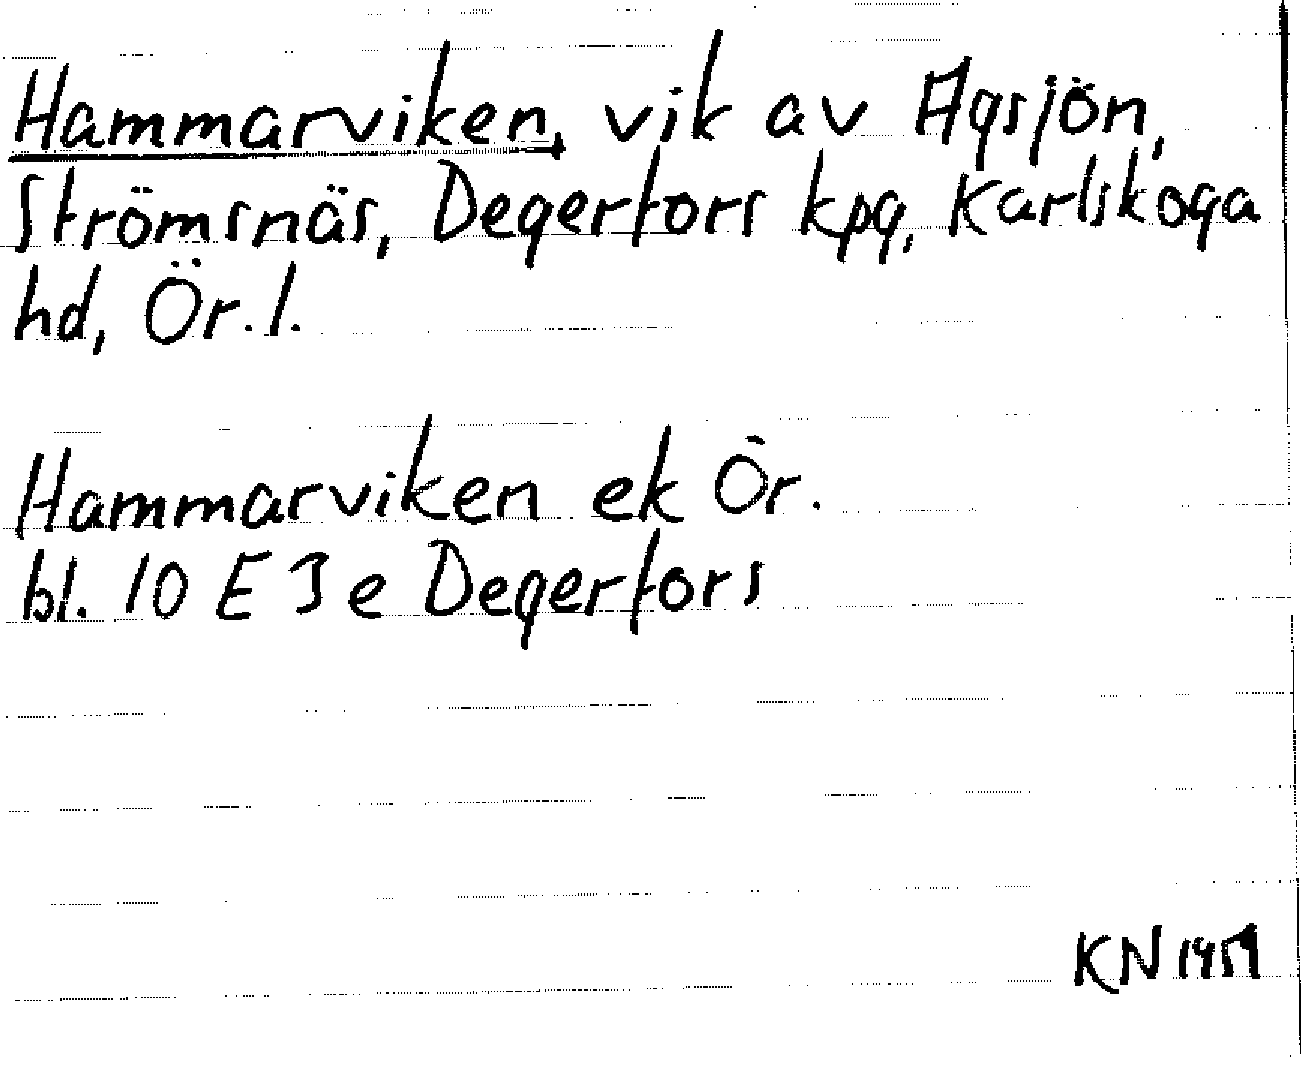 Hammarviken, vik av Agsjön,
Strömsnäs, Degerfors kpg, Karlskoga
hd, Ör. l.
Hammarviken ek Ör.
bl. 10 E 3 e Degerfors
KN